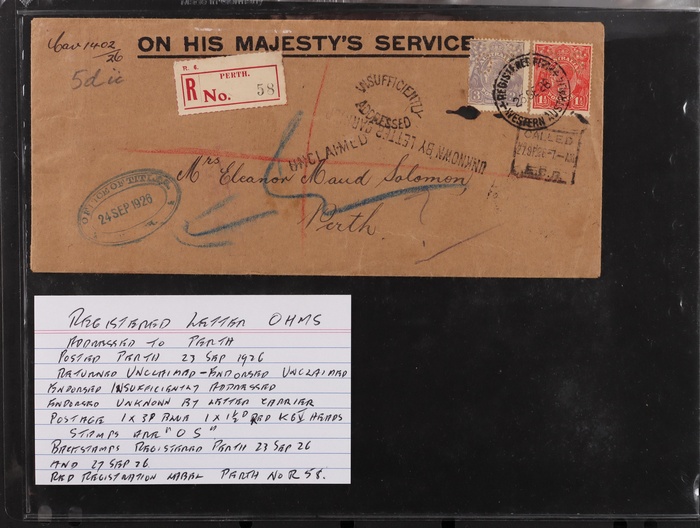 Cav 1402/26
ON HIS MAJESTY'S SERVICE
5d
R. 6. PERTH.
R No. 58
INSUFFICIENTLY
ADDRESSED
UNCLAIMED
UNKNOWN BY LETTER CARRIER
REGISTERED PERTH
WESTERN AUSTRALIA
CALLED
27 SP 26
OFFICE OF TITLES
24 SEP 1926
Mrs Eleanor Maud Solomon,
Perth.
REGISTERED LETTER OHMS
ADDRESSED TO PERTH
POSTED PERTH 23 SEP 1926
RETURNED UNCLAIMED - ENDORSED UNCLAIMED
ENDORSED INSUFFICIENTLY ADDRESSED
ENDORSED UNKNOWN BY LETTER CARRIER
POSTAGE 1 X 3D BLUE 1 X 1½D RED KGV HEADS
STAMPS ARE "OS"
BACKSTAMPS REGISTERED PERTH 23 SEP 26
AND 27 SEP 26
RED REGISTRATION LABEL PERTH NO R 58.